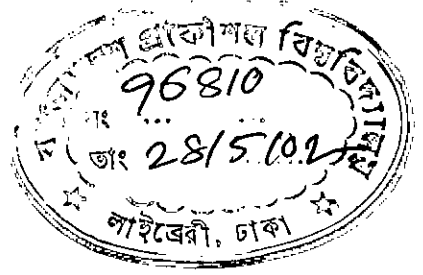 বাংলাদেশ প্রকৌশল বিশ্ববিদ্যালয়
নং 96810
তাং 28/5/02
লাইব্রেরী, ঢাকা